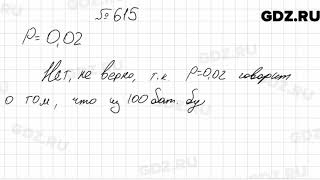 GDZ.RU
№ 615
P = 0,02
Нет, не верно, т.к. P=0,02 говорит
о том, что из 100 бат. бу